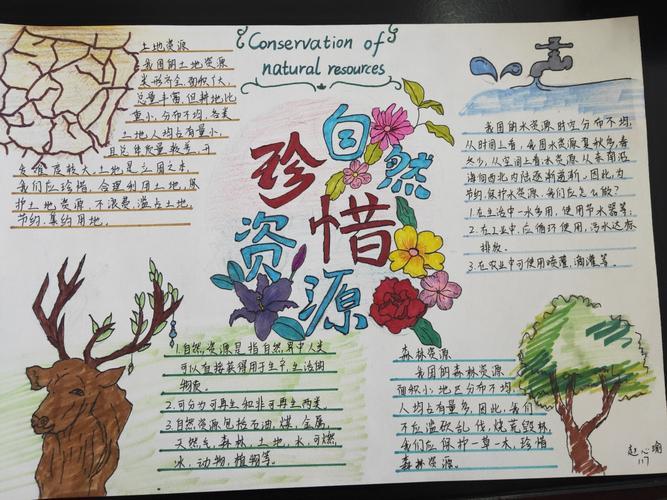 Conservation of
natural resources
珍惜
自然
资源
土地资源
我国的土地资源
类形齐全,面积伏大
总量丰富,但耕地比
重小,分布不均,各类
土地人均占有量小,
且总体质量较差,开
发难度较大,土地是立国之本,
我们应珍惜、合理利用土地,保
护土地资源,不浪费、滥占土地,
节约、集约用地。
我国的水资源时空分布不均,
从时间上看,我国水资源夏秋多,春
冬少,从空间上看水资源从东南沿
海向西北内陆逐渐递渐。因此,为
节约、保护水资源,我们应怎么做?
1.在生活中一水多用,使用节水器等。
2.在工业中,应循环使用,污水达标
排放。
3.在农业中可使用喷灌、滴灌等。
1.自然资源是指自然界中人类
可以直接获得用于生产、生活的
物质。
2.可分为可再生和非可再生两类。
3.自然资源包括石油、煤、金属、
天然气、森林、土地、水、可燃
冰、动物、植物等。
森林资源
我国的森林资源
面积小,地区分布不均,
人均占有量多,因此,我们
不应滥砍乱伐,烧荒毁林,
我们应保护一草一木,珍惜
森林资源。
赵心瑜
117